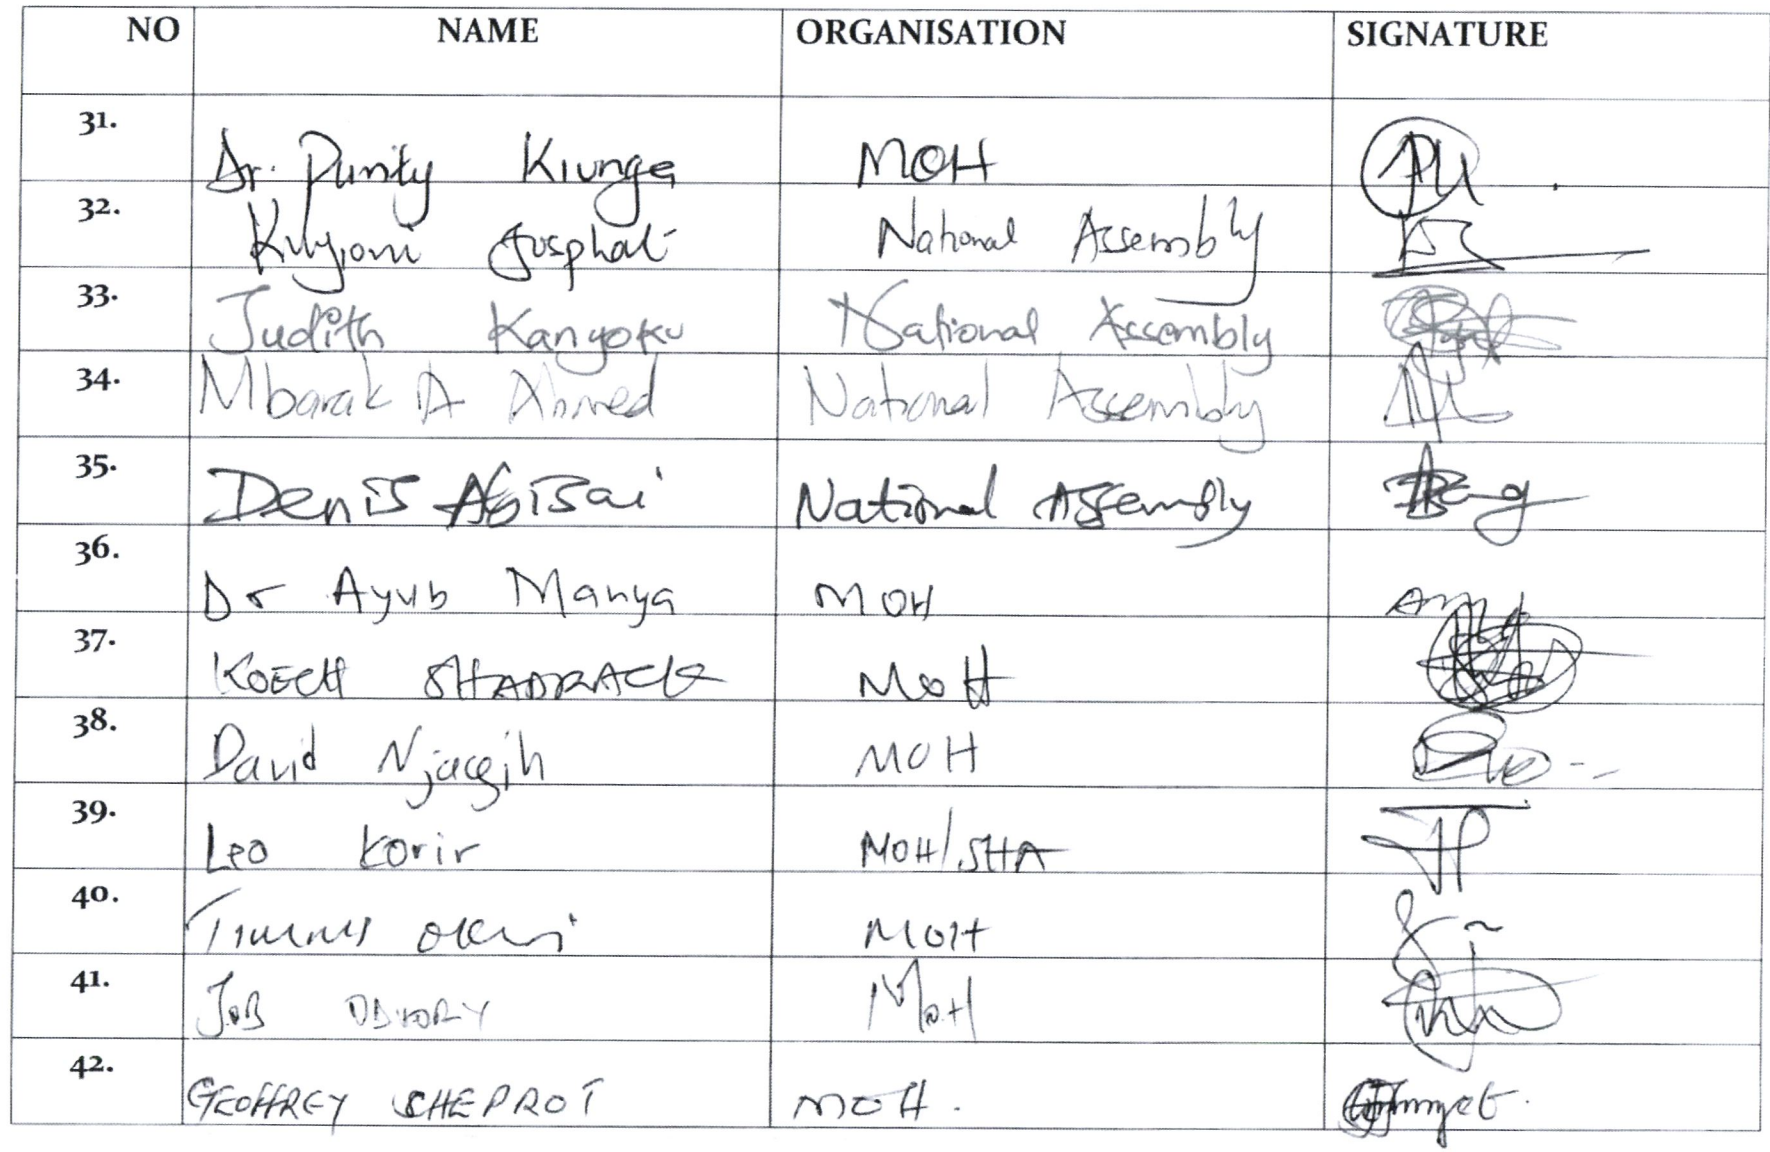 NO NAME ORGANISATION SIGNATURE
31. Dr. Purity Kiunga MOH
32. Josphat National Assembly
33. Judith Kanyoku National Assembly
34. Mbarak A Ahmed National Assembly
35. Denis Abisai National Assembly
36. Dr Ayub Manya MOH
37. KOECH SHADRACK MoH
38. David Njaagih MOH
39. Leo Korir MOH/SHA
40. MOH
41. JOB MoH
42. GEOFFREY CHEPROT MOH.